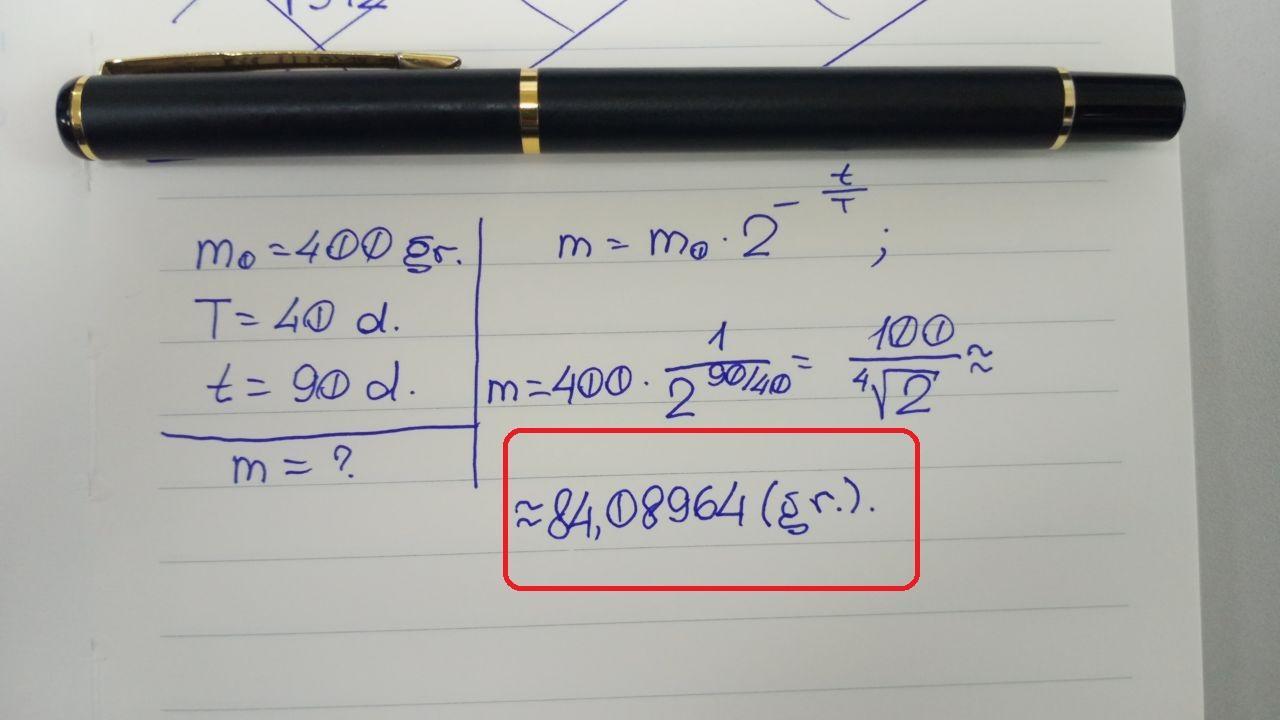 m₀ = 400 gr.
T = 40 d.
t = 90 d.
m = ?
m = m₀ · 2^(-t/T) ;
m = 400 · 1/2^(90/40) = 100/⁴√2 ≈
≈ 84,08964 (gr.).